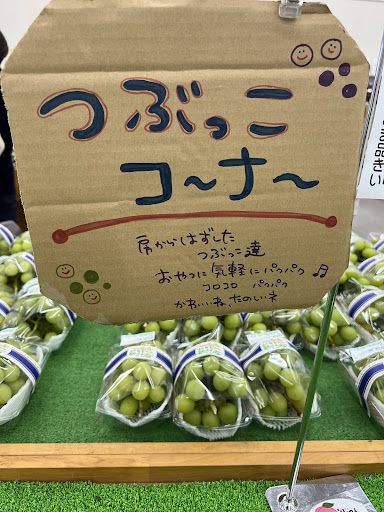 つぶっこ
コ〜ナ〜
房からはずした
つぶっこ達
おやつに気軽にパクパク♫
コロコロ パクパク
かわいいね、たのしいネ